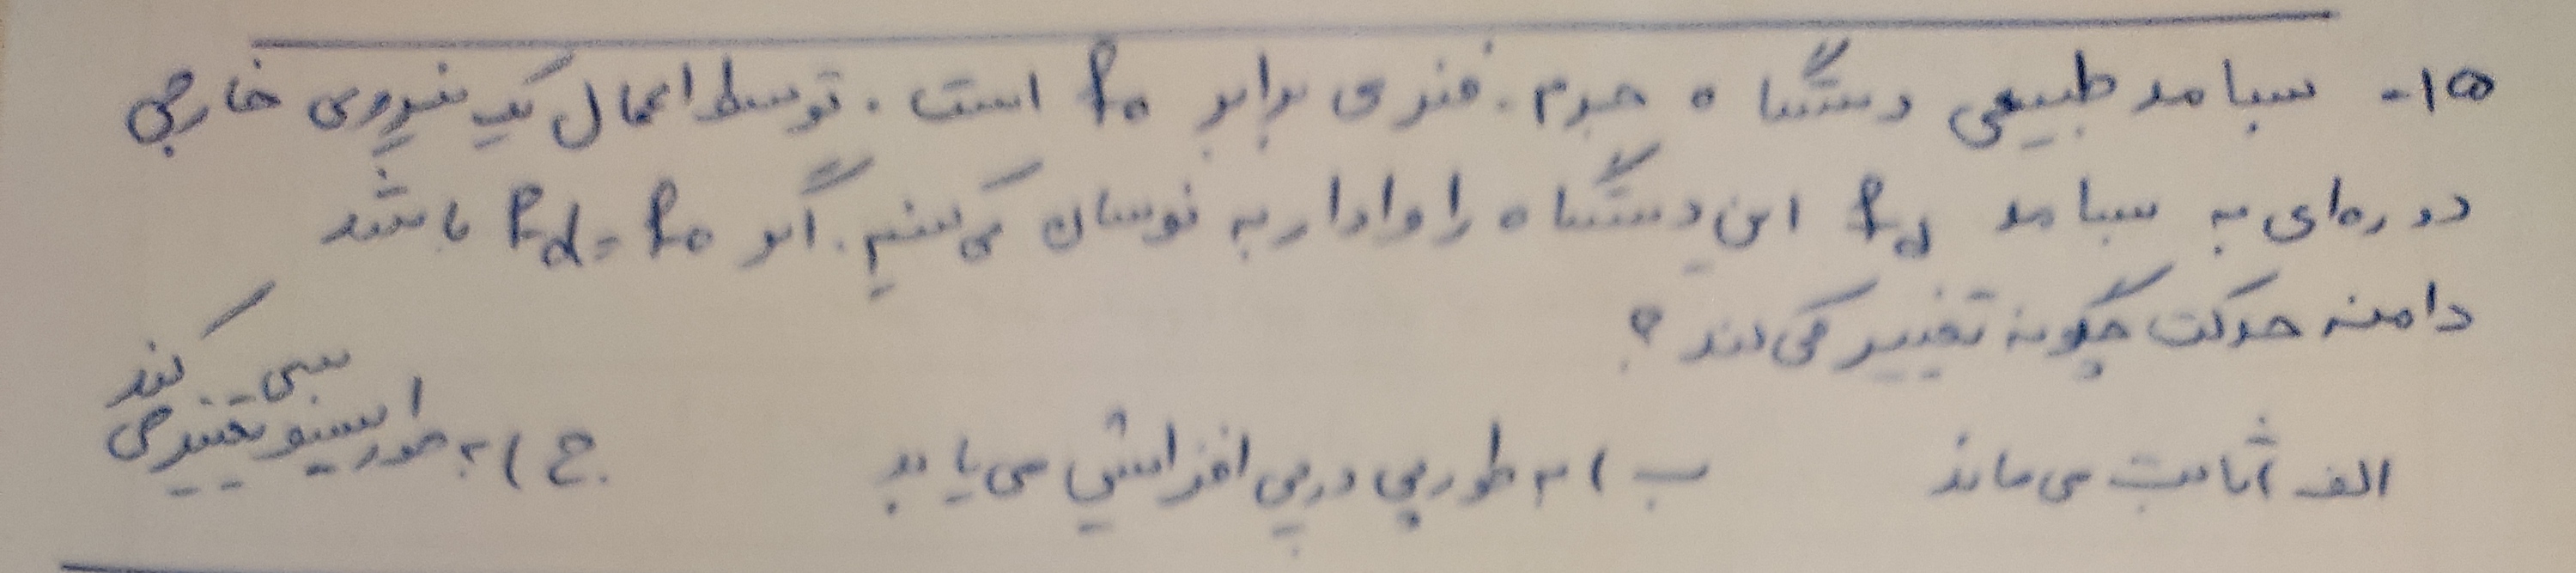 ۱۵- سبامد طبیعی دستگاه جرم. فنری برابر f₀ است. توسط اعمال یک نیروی خارجی
دوره‌ای به سبامد fd این دستگاه را وادار به نوسان می‌کنیم. اگر fd = f₀ باشد
دامنه حرکت چگونه تغییر می‌کند؟
الف) ثابت می‌ماند ب) به طور پی در پی افزایش می‌یابد ج) به طور سینوسی تغییر می‌کند